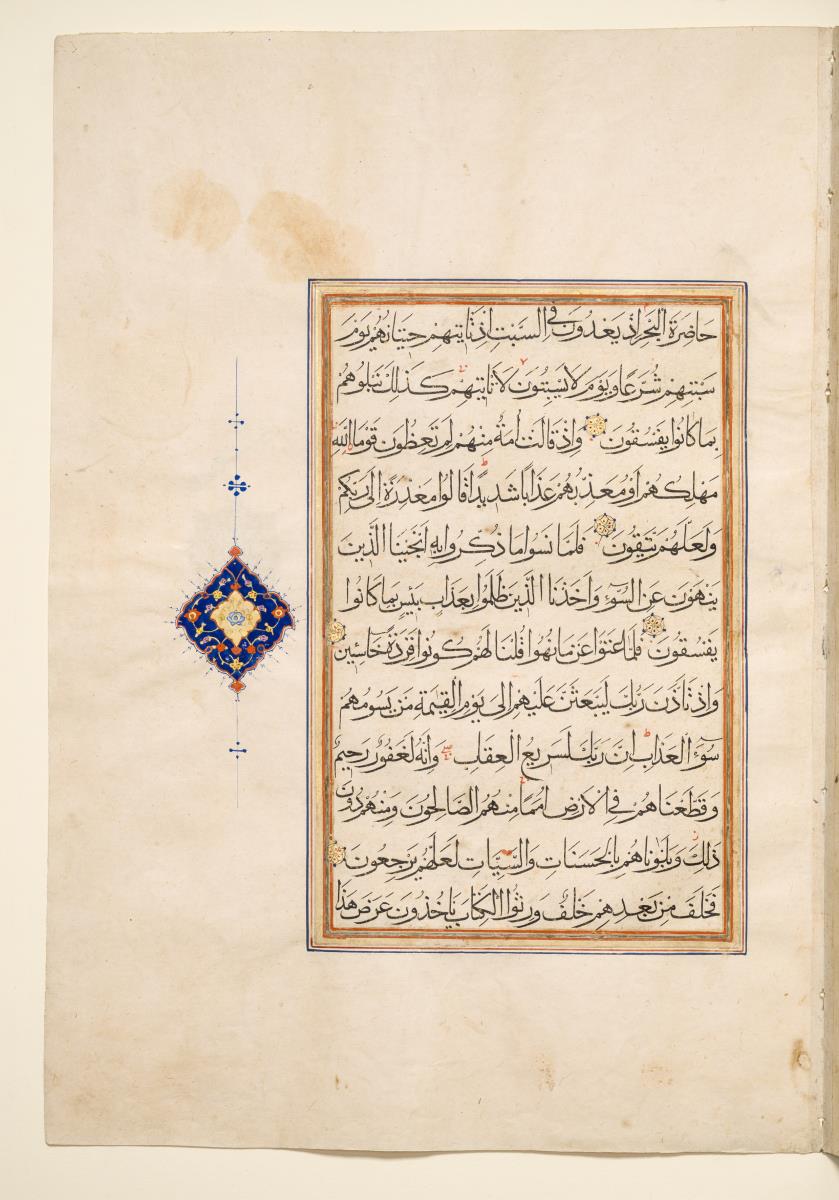 حَاضِرَةَ الْبَحْرِ اِذْ يَعْدُونَ فِي السَّبْتِ اِذْ تَاْتِيهِمْ حِيتَانُهُمْ يَوْمَ
سَبْتِهِمْ شُرَّعًا وَيَوْمَ لَا يَسْبِتُونَ لَا تَاْتِيهِمْ كَذٰلِكَ نَبْلُوهُمْ
بِمَا كَانُوا يَفْسُقُونَ وَاِذْ قَالَتْ اُمَّةٌ مِنْهُمْ لِمَ تَعِظُونَ قَوْمًا اللّٰهُ
مُهْلِكُهُمْ اَوْ مُعَذِّبُهُمْ عَذَابًا شَدِيدًا قَالُوا مَعْذِرَةً اِلٰى رَبِّكُمْ
وَلَعَلَّهُمْ يَتَّقُونَ فَلَمَّا نَسُوا مَا ذُكِّرُوا بِهِ اَنْجَيْنَا الَّذِينَ
يَنْهَوْنَ عَنِ السُّوٓءِ وَاَخَذْنَا الَّذِينَ ظَلَمُوا بِعَذَابٍ بَئِيسٍ بِمَا كَانُوا
يَفْسُقُونَ فَلَمَّا عَتَوْا عَنْ مَا نُهُوا قُلْنَا لَهُمْ كُونُوا قِرَدَةً خَاسِئِينَ
وَاِذْ تَاَذَّنَ رَبُّكَ لَيَبْعَثَنَّ عَلَيْهِمْ اِلٰى يَوْمِ الْقِيٰمَةِ مَنْ يَسُومُهُمْ
سُوٓءَ الْعَذَابِ اِنَّ رَبَّكَ لَسَرِيعُ الْعِقَابِ وَاِنَّهُ لَغَفُورٌ رَحِيمٌ
وَقَطَّعْنَاهُمْ فِي الْاَرْضِ اُمَمًا مِنْهُمُ الصَّالِحُونَ وَمِنْهُمْ دُونَ
ذٰلِكَ وَبَلَوْنَاهُمْ بِالْحَسَنَاتِ وَالسَّيِّئَاتِ لَعَلَّهُمْ يَرْجِعُونَ
فَخَلَفَ مِنْ بَعْدِهِمْ خَلْفٌ وَرِثُوا الْكِتَابَ يَاْخُذُونَ عَرَضَ هٰذَا